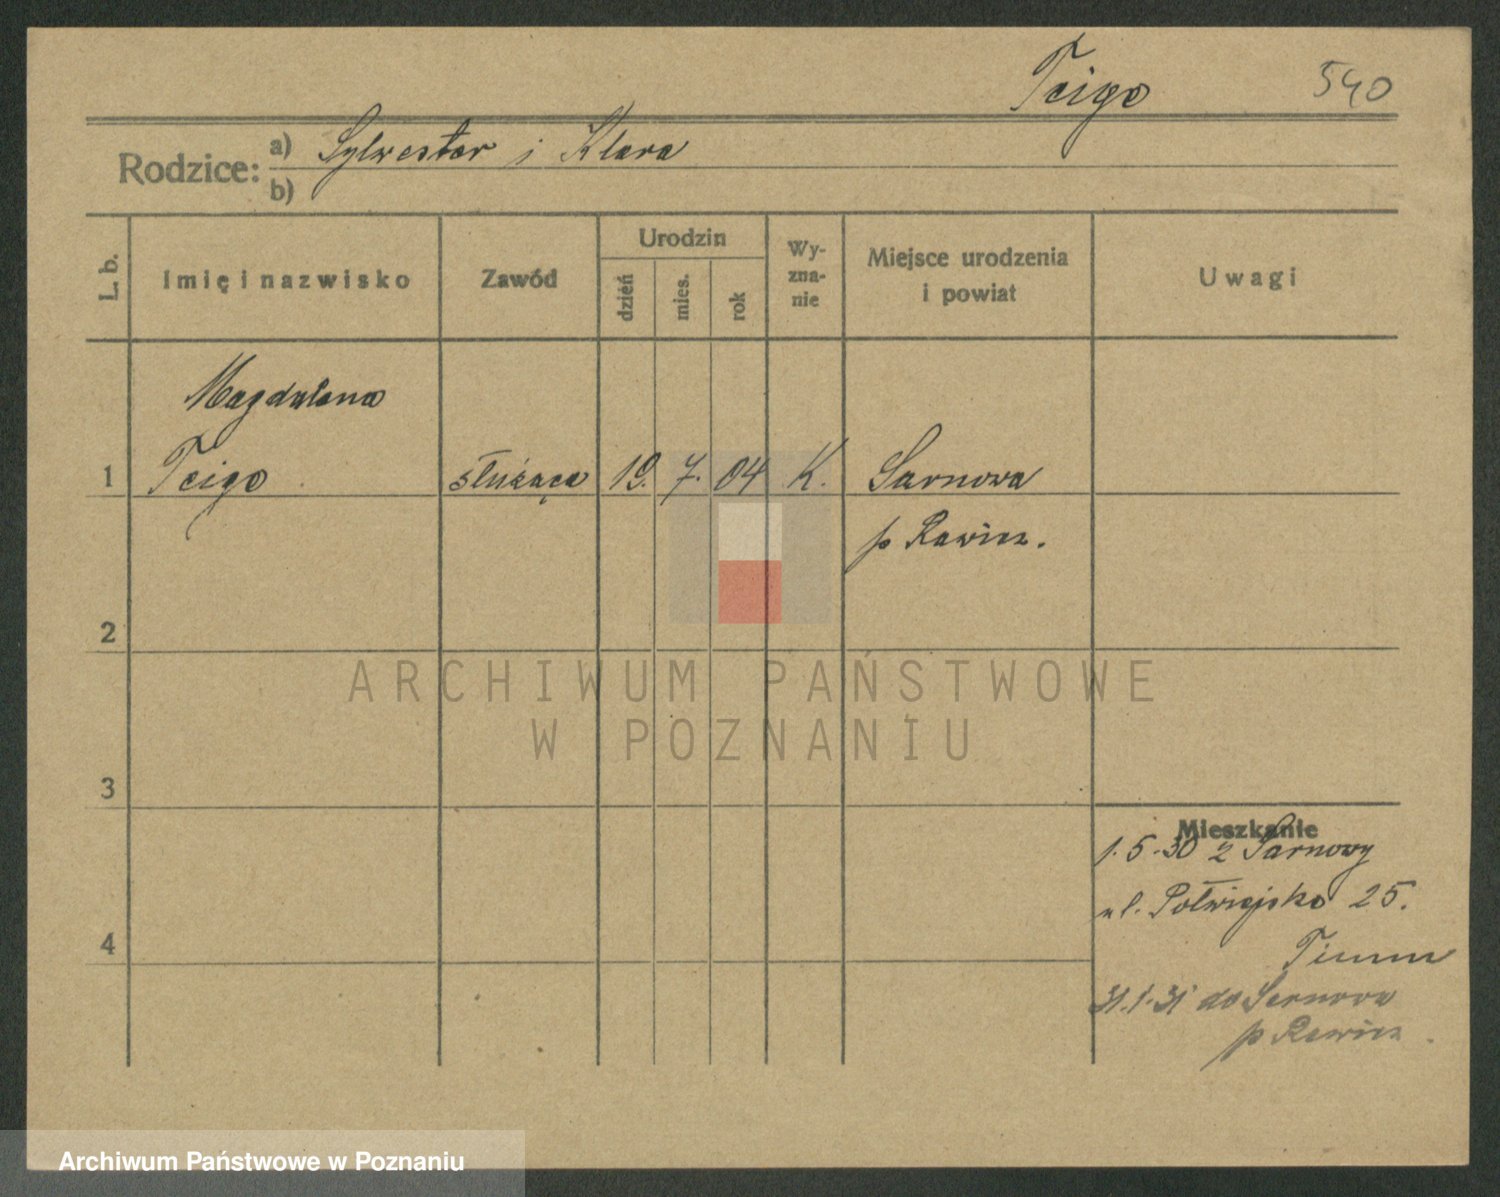 Tcigo 540
Rodzice: a) Sylwester i Klara
b)
L. b.
Imię i nazwisko
Zawód
Urodzin
dzień
mies.
rok
Wy-
zna-
nie
Miejsce urodzenia
i powiat
Uwagi
Magdalena
1 Tcigo służąca 19. 7. 04 K. Sarnowa
p Rawicz.
2
3
4
Mieszkanie
1.5.30 z Sarnowy
ul. Półwiejska 25.
Timm
31.1.31 do Sarnowa
p Rawicz.
ARCHIWUM PAŃSTWOWE
W POZNANIU
Archiwum Państwowe w Poznaniu